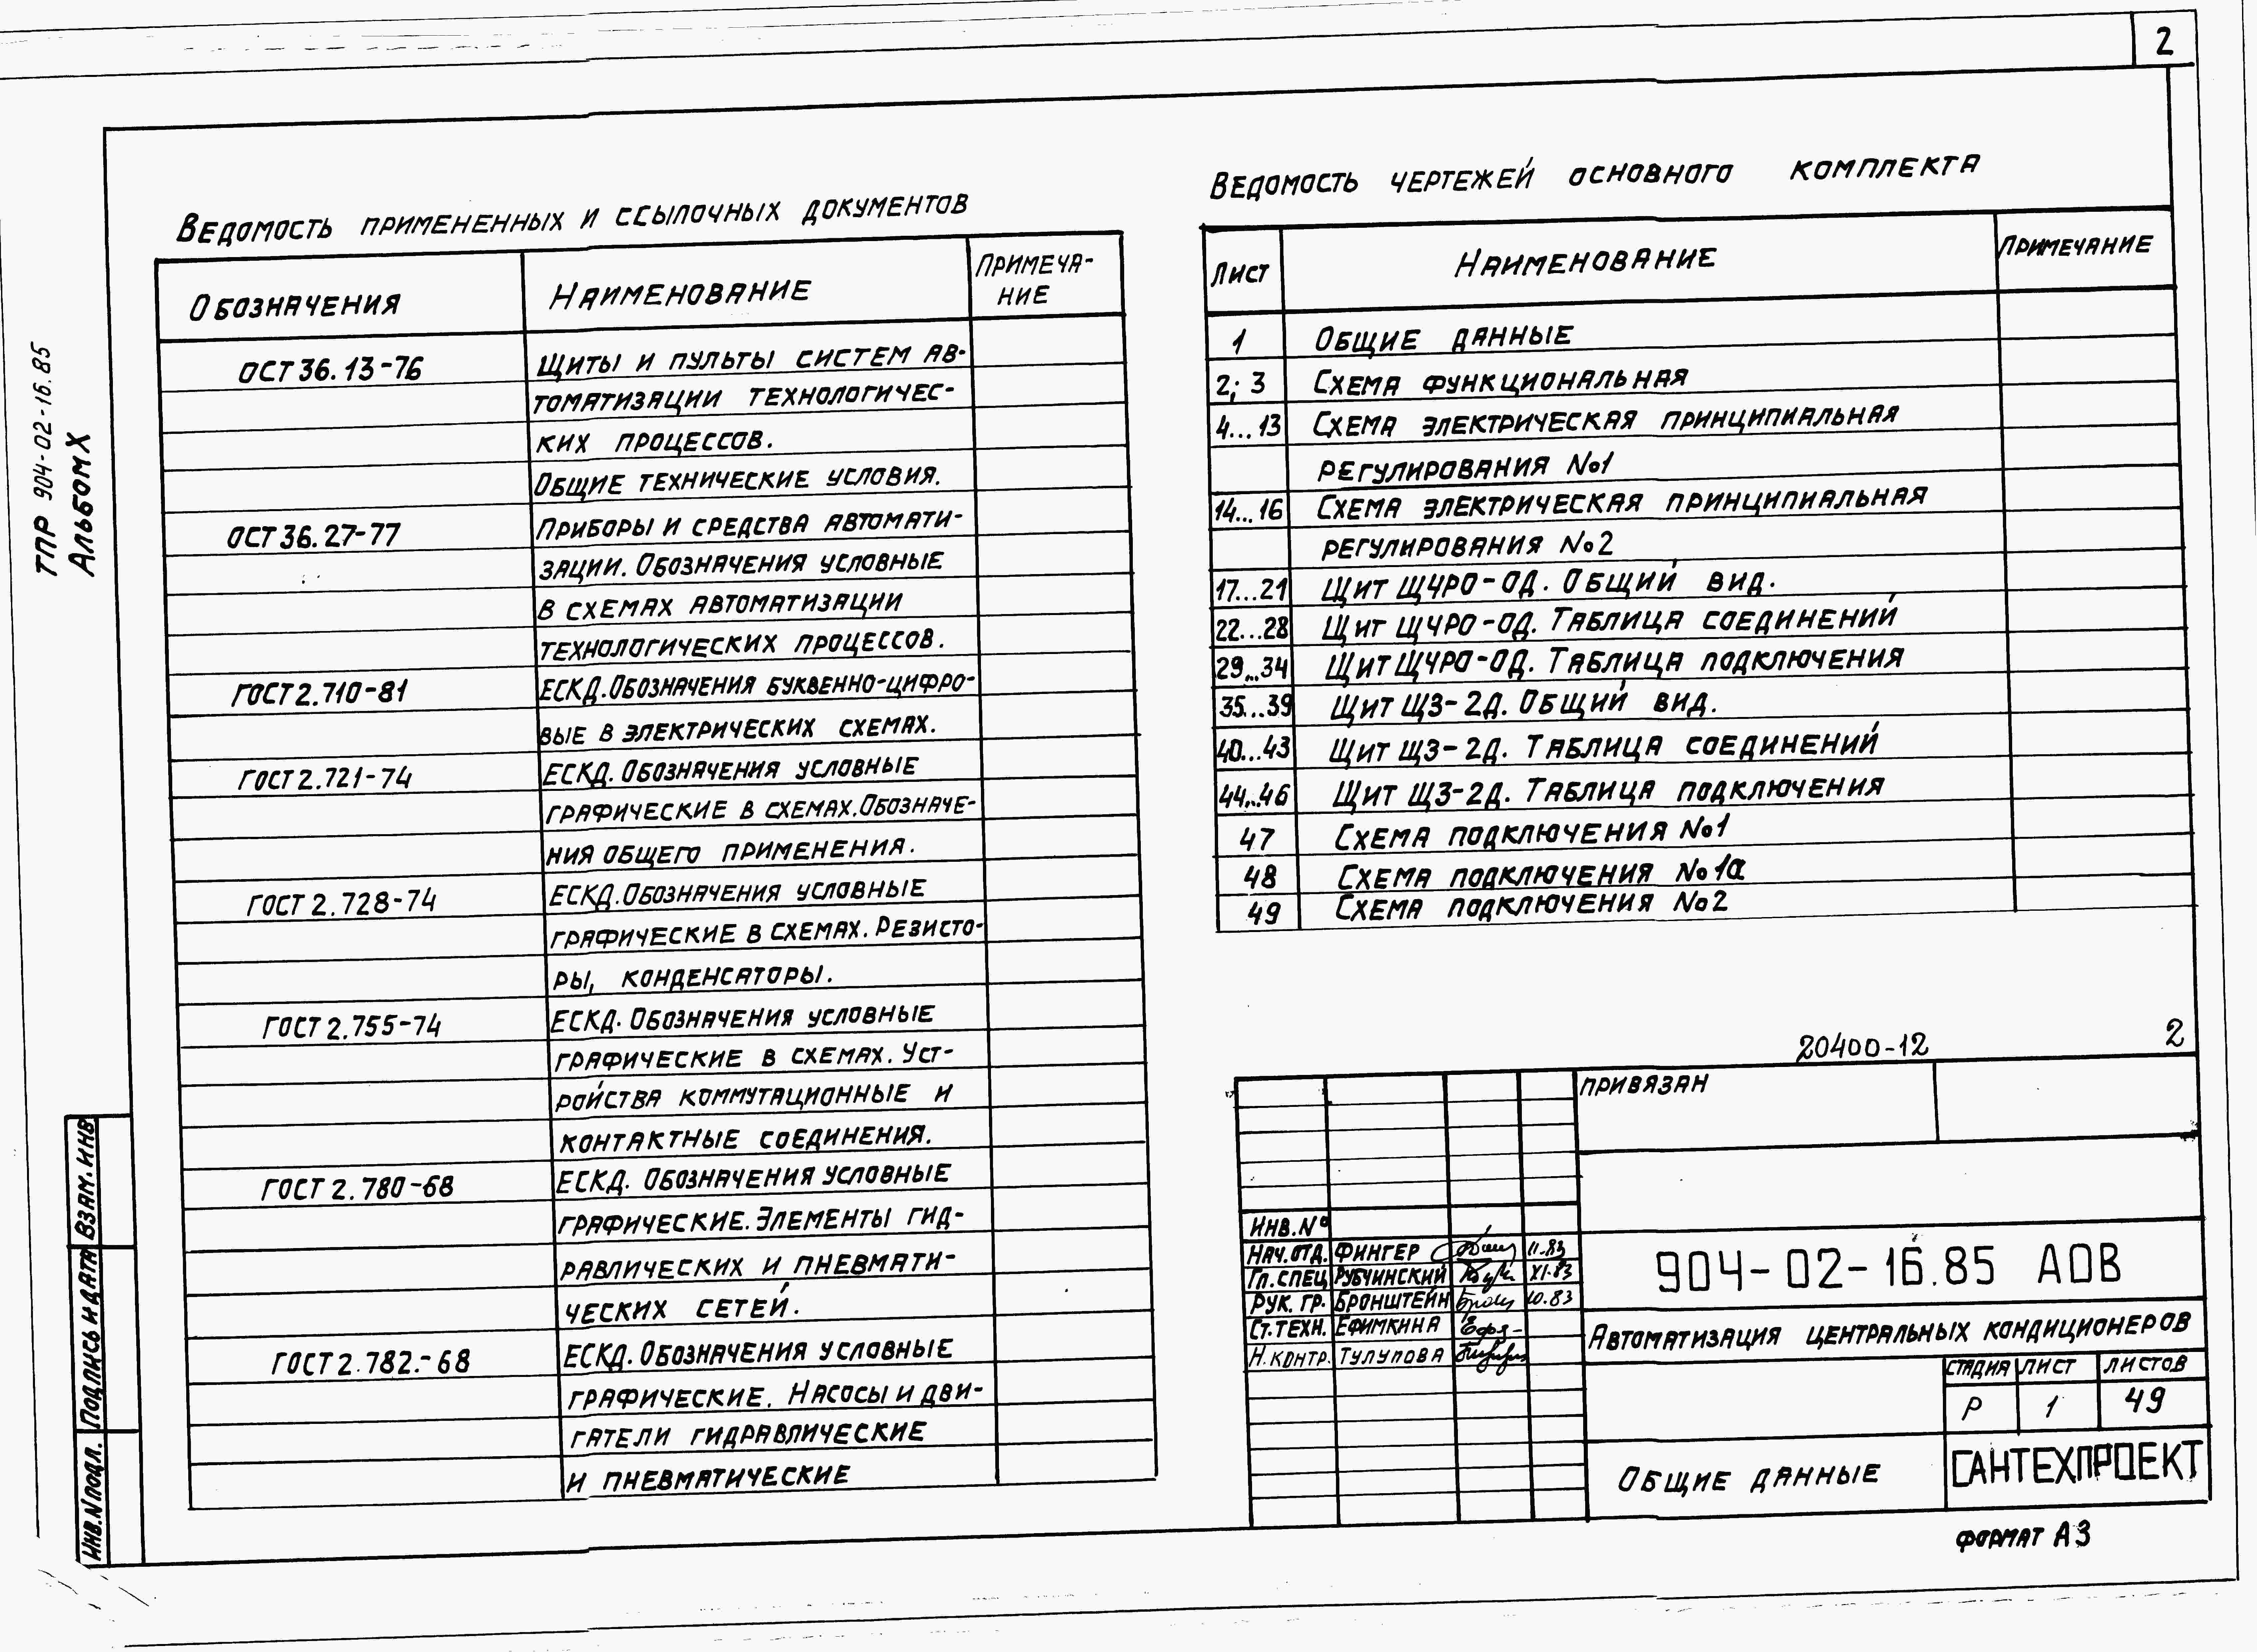 2
ТПР 904-02-16.85
Альбом X
Ведомость примененных и ссылочных документов
Обозначения | Наименование | Примеча-
ние
ОСТ 36.13-76 | Щиты и пульты систем ав-
томатизации технологичес-
ких процессов.
Общие технические условия.
ОСТ 36.27-77 | Приборы и средства автомати-
зации. Обозначения условные
в схемах автоматизации
технологических процессов.
ГОСТ 2.710-81 | ЕСКД. Обозначения буквенно-цифро-
вые в электрических схемах.
ГОСТ 2.721-74 | ЕСКД. Обозначения условные
графические в схемах. Обозначе-
ния общего применения.
ГОСТ 2.728-74 | ЕСКД. Обозначения условные
графические в схемах. Резисто-
ры, конденсаторы.
ГОСТ 2.755-74 | ЕСКД. Обозначения условные
графические в схемах. Уст-
ройства коммутационные и
контактные соединения.
ГОСТ 2.780-68 | ЕСКД. Обозначения условные
графические. Элементы гид-
равлических и пневмати-
ческих сетей.
ГОСТ 2.782.-68 | ЕСКД. Обозначения условные
графические. Насосы и дви-
гатели гидравлические
и пневматические
Ведомость чертежей основного комплекта
Лист | Наименование | Примечание
1 | Общие данные
2; 3 | Схема функциональная
4...13 | Схема электрическая принципиальная
регулирования №1
14...16 | Схема электрическая принципиальная
регулирования №2
17...21 | Щит ЩЧРО-ОД. Общий вид.
22...28 | Щит ЩЧРО-ОД. Таблица соединений
29...34 | Щит ЩЧРО-ОД. Таблица подключения
35...39 | Щит ЩЗ-2Д. Общий вид.
40...43 | Щит ЩЗ-2Д. Таблица соединений
44...46 | Щит ЩЗ-2Д. Таблица подключения
47 | Схема подключения №1
48 | Схема подключения №1а
49 | Схема подключения №2
20400-12 2
Привязан
Инв. №
Нач. отд. | Фингер | 11.83
Гл. спец. | Рубчинский | XI.83
Рук. гр. | Бронштейн | 10.83
Ст. техн. | Ефимкина
Н. контр. | Тулупова
904-02-16.85 АОВ
Автоматизация центральных кондиционеров
Стадия | Лист | Листов
Р | 1 | 49
Общие данные
САНТЕХПРОЕКТ
Формат А3
Взам. инв
Подпись и дата
Инв. N подл.